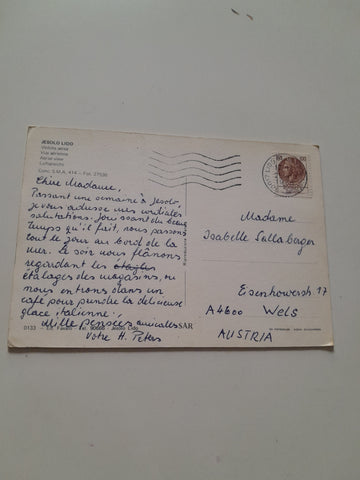 JESOLO LIDO
Veduta aerea
Vue aérienne
Aerial view
Luftansicht
Conc. S.M.A. 414
Chère Madame,
Passant une semaine à Jesolo,
je vous adresse mes cordiales
salutations. Jouissant du beau
temps qu'il fait, nous passons
tout le jour au bord de la
mer. Le soir nous flânons
regardant les
étalages des magasins, ou
nous entrons dans un
café pour prendre la délicieuse
glace italienne.
Mille pensées amicales
Votre H. Peters
0133 - Ed. Jesolo Lido
SAR
Madame
Isabella Sallaberger
Eisenhowerstr. 17
A4600 Wels
AUSTRIA